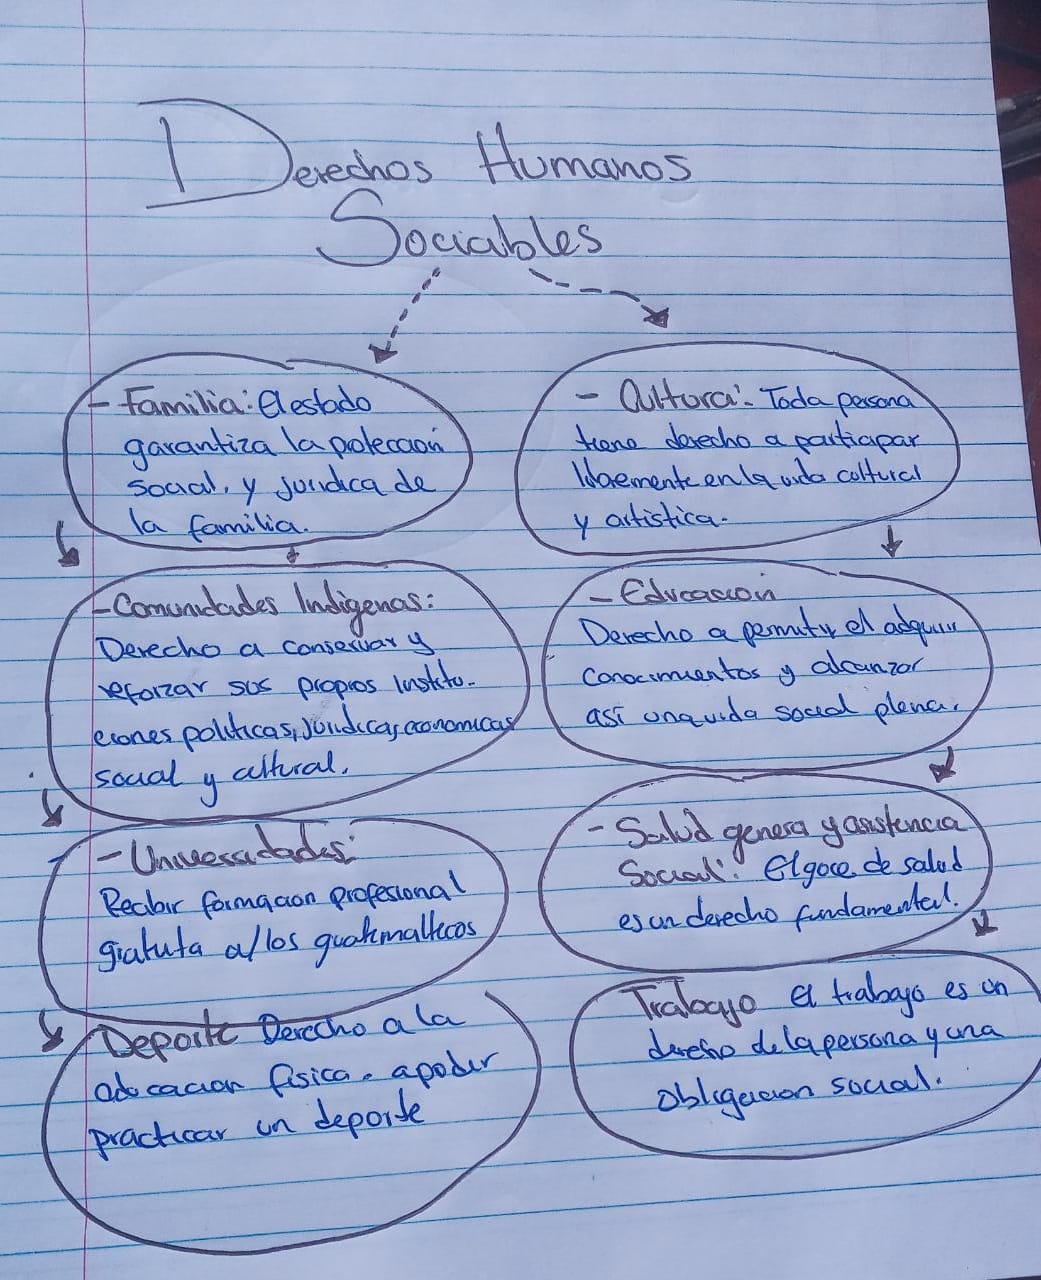 Derechos Humanos
Sociables
- Familia: El estado
garantiza la proteccion
social, y juridica de
la familia.
- Comunidades Indigenas:
Derecho a conservar y
reforzar sus propios Institu-
ciones politicas, Juridicas, economicas
social y cultural.
- Universidades:
Recibir formacion profesional
gratuta a/los guatemaltecos
Deporte Derecho a la
adocacion fisica. a poder
practicar un deporte
- Cultura: Toda persona
tiene derecho a participar
libremente en la vida cultural
y artistica.
- Educacion
Derecho a permitir el adquirir
conocimientos y alcanzar
asi una vida social plena.
- Salud genera y asistencia
Social: El goce de salud
es un derecho fundamental.
Trabajo El trabajo es un
derecho de la persona y una
obligacion social.